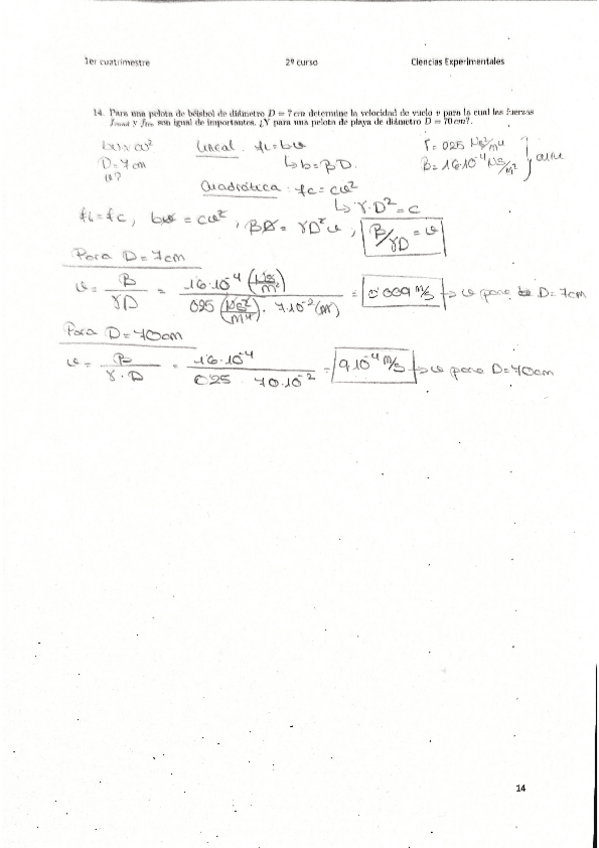 1er cuatrimestre 2º curso Ciencias Experimentales
14. Para una pelota de béisbol de diámetro D = 7 cm determine la velocidad de vuelo v para la cual las fuerzas
f y f son igual de importantes. ¿Y para una pelota de playa de diámetro D = 70 cm?.
bv = cv² Lineal: fL = bv γ = 0'25 Ns²/m⁴
D = 7 cm ↳ b = βD. β = 1'6·10⁻⁴ Ns/m² } aire
v?
Cuadrática: fc = cv²
↳ γ·D² = c
fL = fc, bv = cv², βD = γD²v, β/γD = v
Para D = 7cm
v = β/γD = 1'6·10⁻⁴ (Ns/m²) / 0'25 (Ns²/m⁴) · 7·10⁻² (m) = 0'009 m/s → v para D = 7cm
Para D = 70cm
v = β/γ·D = 1'6·10⁻⁴ / 0'25 · 70·10⁻² = 9·10⁻⁴ m/s → v para D = 70cm
14